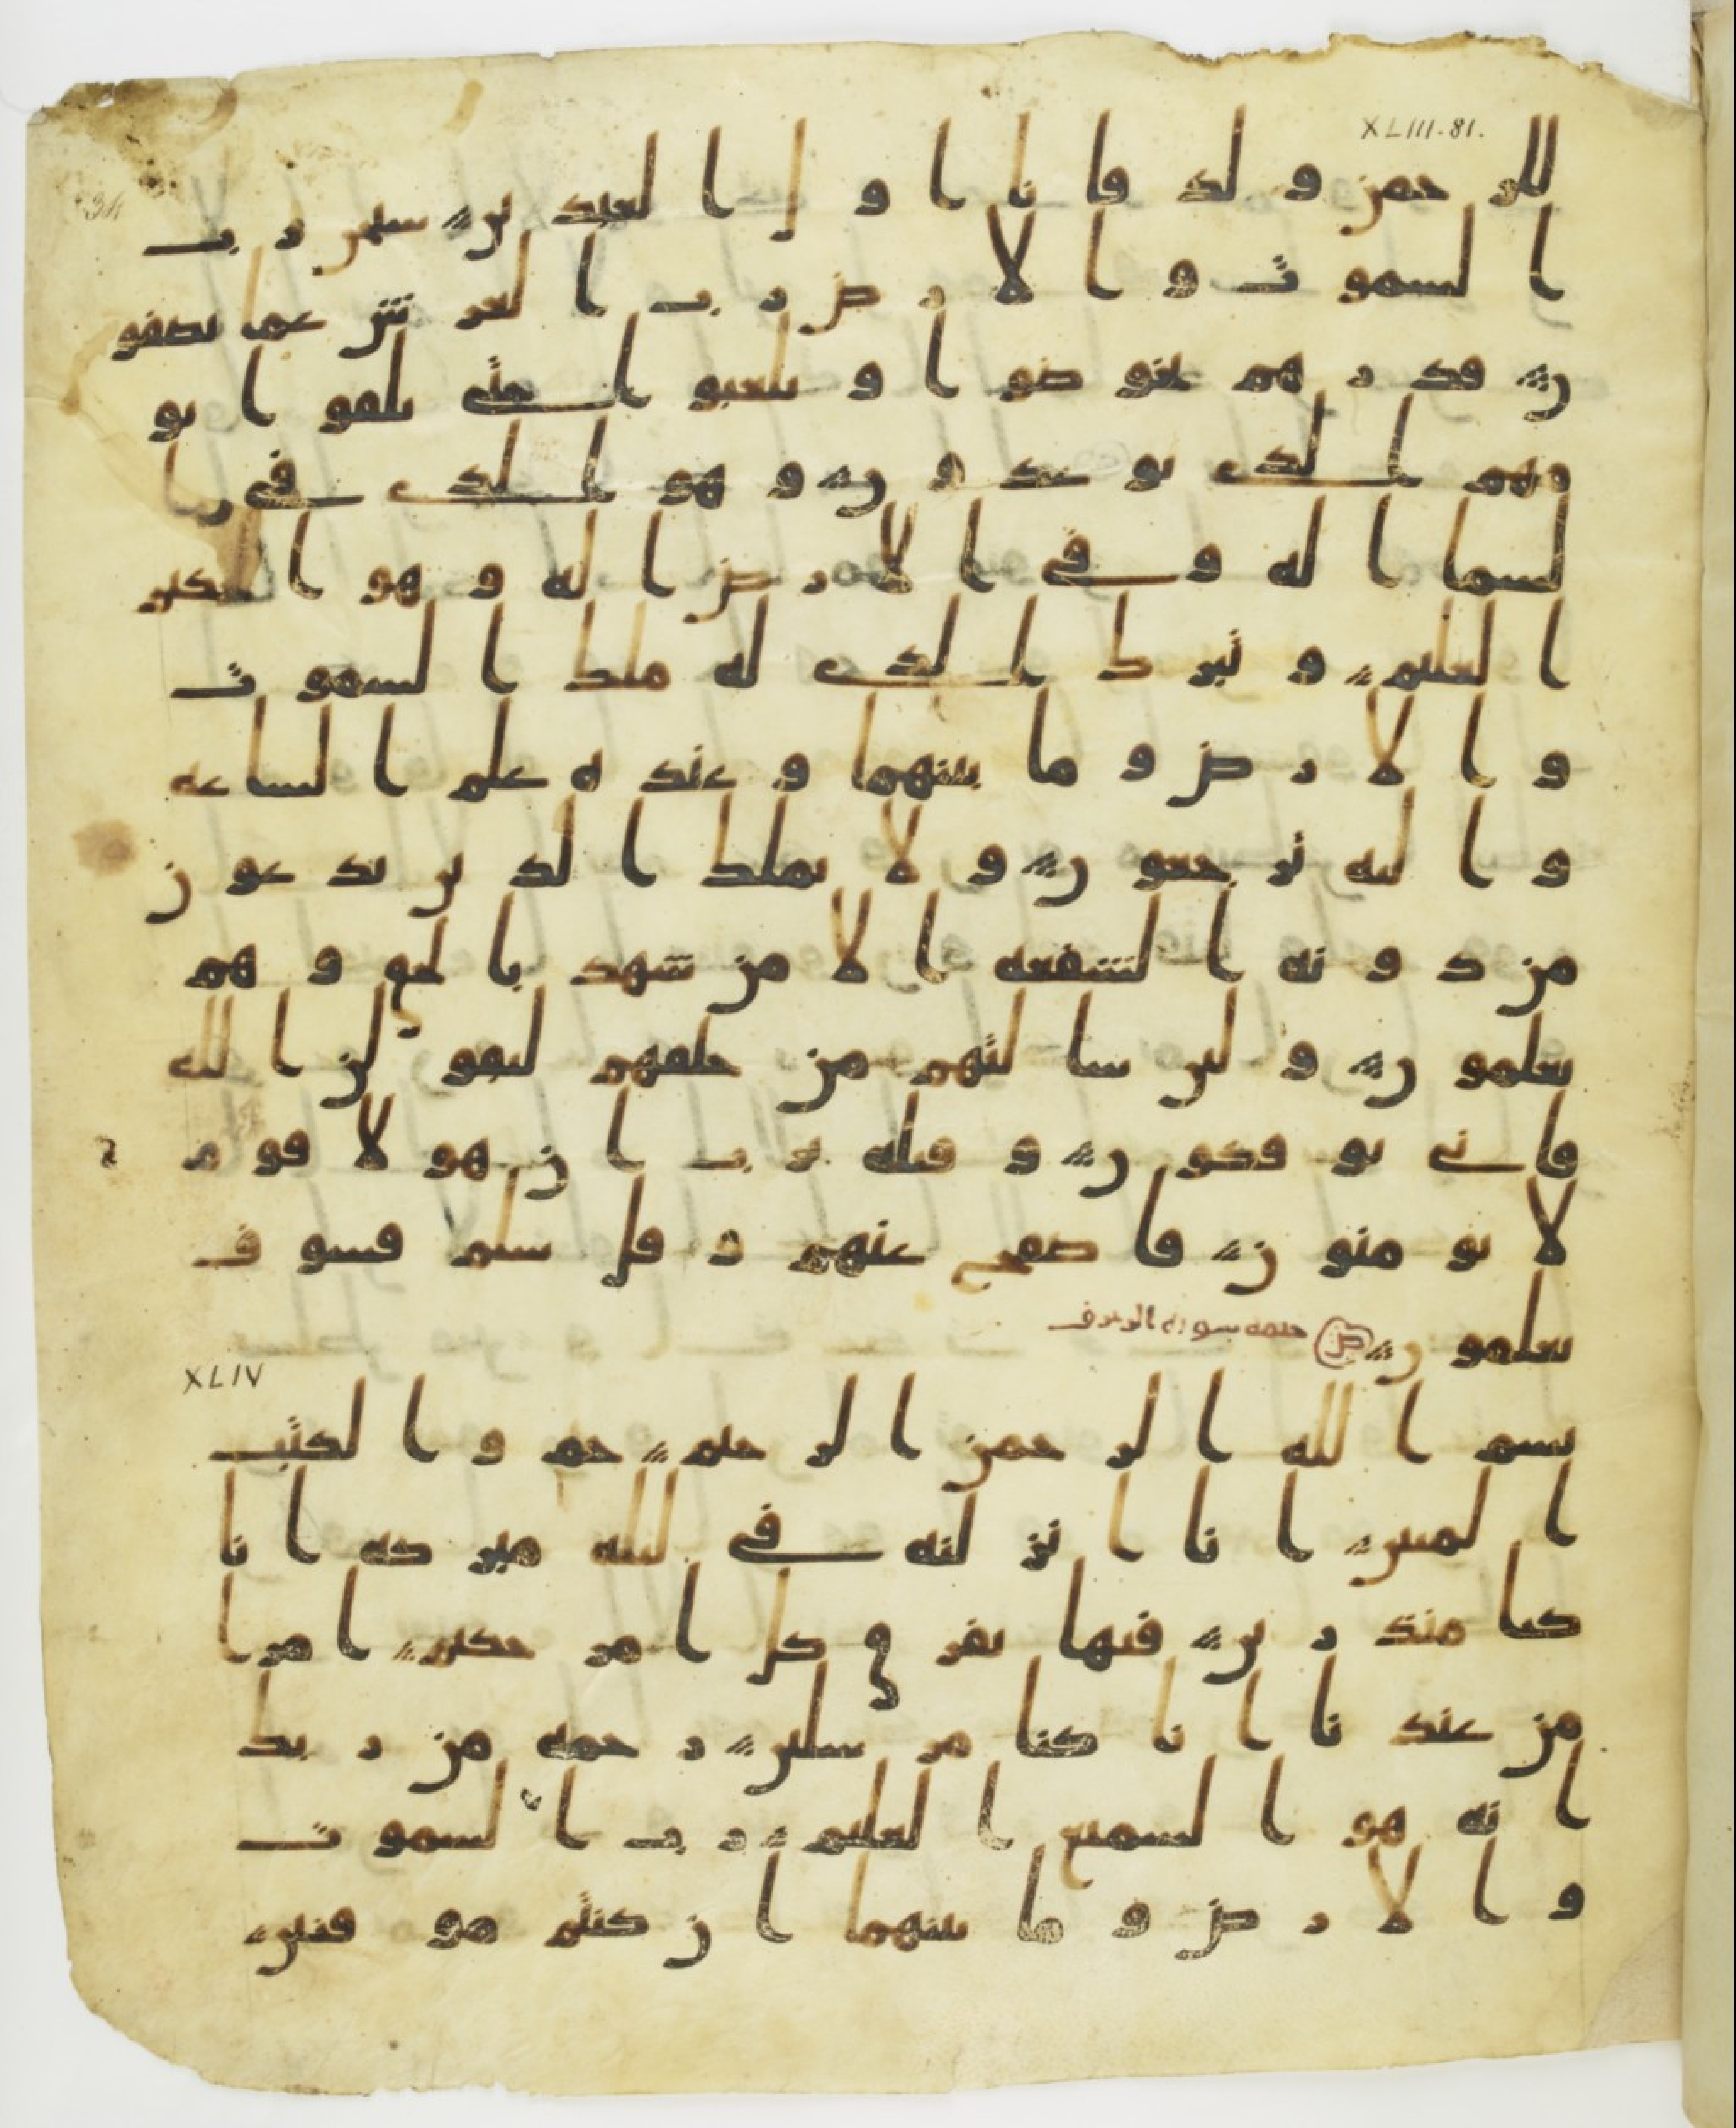 XLIII.81.
للرحمن ولد فانا اول العبدين سبحن رب
السموت والارض رب العرش عما يصفو
ن فذرهم يخوضوا ويلعبوا حتى يلقوا يو
مهم الذي يوعدون وهو الذي في ا
لسما اله وفي الارض اله وهو الحكيم
العليم وتبرك الذي له ملك السموت
والارض وما بينهما وعنده علم الساعه
واليه ترجعون ولا يملك الذين يدعون
من دونه الشفعه الا من شهد بالحق وهم
يعلمون ولين سالتهم من خلقهم ليقولن الله
فانى يوفكون وقيله يرب ان هولا قوم
لا يومنون فاصفح عنهم وقل سلم فسوف
يعلمون ختمه سوره الزخرف
XLIV
بسم الله الرحمن الرحيم حم والكتب
المبين انا انزلنه في ليله مبركه انا
كنا منذرين فيها يفرق كل امر حكيم امرا
من عندنا انا كنا مرسلين رحمه من ربك
انه هو السميع العليم رب السموت
والارض وما بينهما ان كنتم موقنين